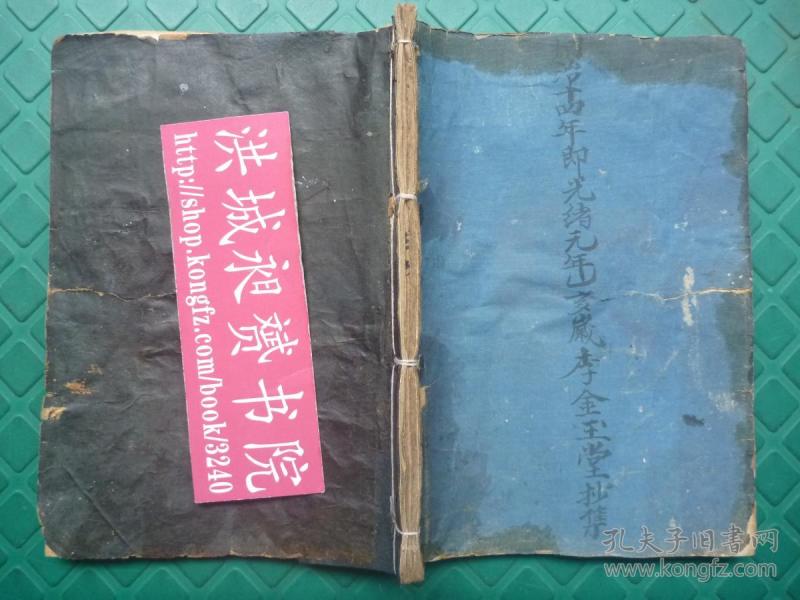 洪城昶赟书院
http://shop.kongfz.com/book/3240
年即光绪元年
歲李金玉堂抄集
孔夫子旧书网
www.kongfz.com